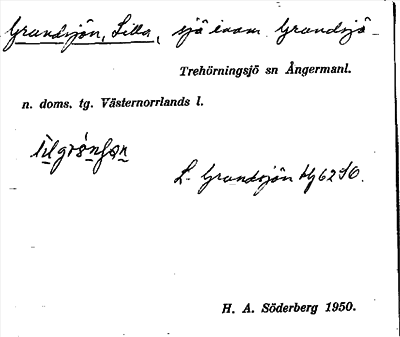 Grundsjön, Lilla, sjö inom Grundsjö-
Trehörningsjö sn Ångermanl.
n. doms. tg. Västernorrlands l.
L. Grundsjön hfg 62 SO.
H. A. Söderberg 1950.